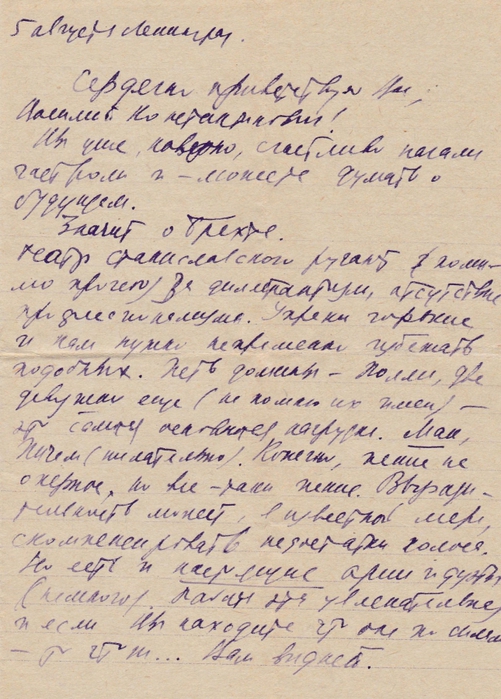 5 августа Ленинград.
Сердечно приветствую Вас,
Василий Константинович!
Вы уже, наверно, счастливо начали
гастроли и – можете думать о
будущем.
Значит о Брехте.
Театр Станиславского ругают (поми-
мо прочего) за дилетантизм, отсутствие
профессионализма. Упреки горькие
и нам нужно непременно избежать
подобных. Петь должны – Полли, две
девушки еще (не помню их имен) –
это самая основная нагрузка. Мак,
Пичем (желательно). Конечно, пение не
оперное, но все-таки пение. Вырази-
тельность может, в известной мере,
скомпенсировать недостатки голоса.
Но есть и настоящие арии и дуэты
(немного) работа эта увлекательная,
и если Вы находите что она по силам
– то что ж... Вам видней.